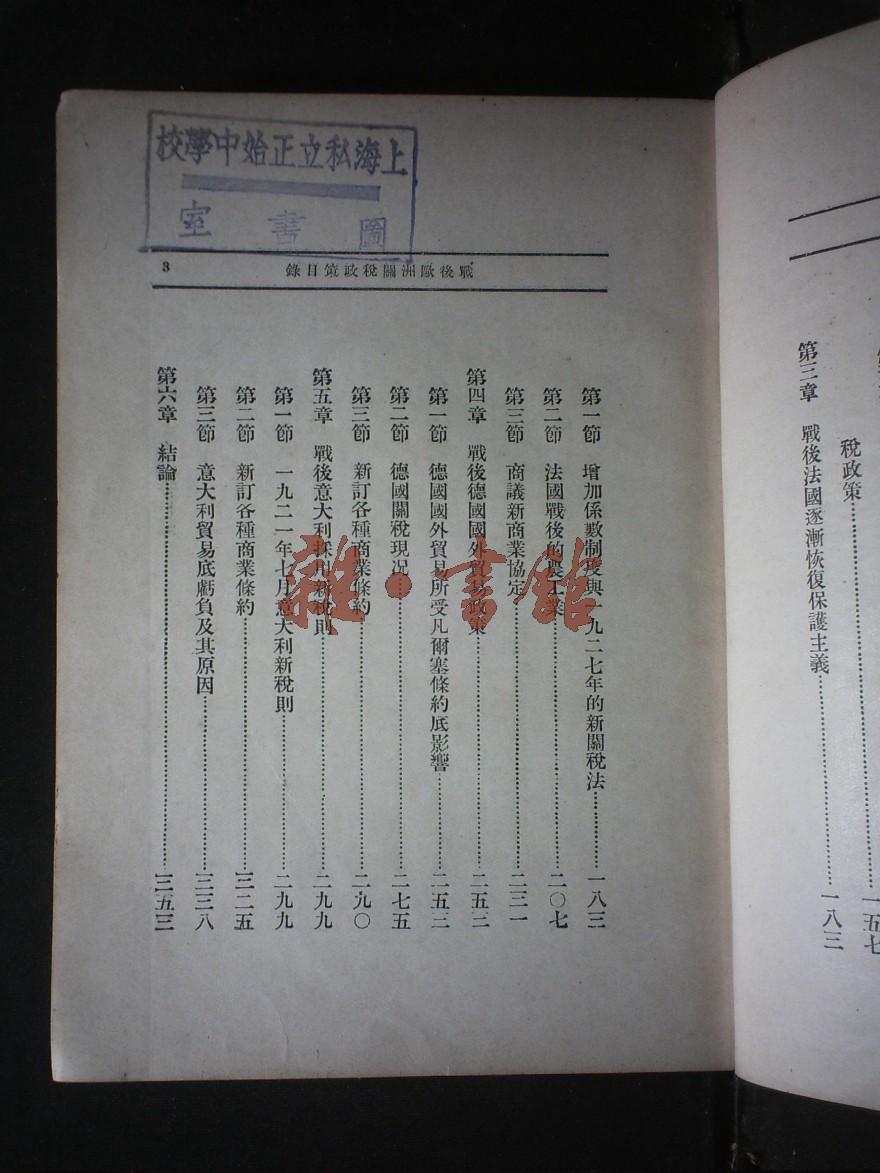 上海私立正始中學校
圖書室
戰後歐洲關稅政策目錄
3
稅政策……一五七
第三章 戰後法國逐漸恢復保護主義……一八三
第一節 增加係數制度與一九二七年的新關稅法……一八三
第二節 法國戰後的農工業……二〇七
第三節 商議新商業協定……二三一
第四章 戰後德國國外貿易政策……二五三
第一節 德國國外貿易所受凡爾塞條約底影響……二五三
第二節 德國關稅現況……二七五
第三節 新訂各種商業條約……二九〇
第五章 戰後意大利採用新稅則……二九九
第一節 一九二一年七月意大利新稅則……二九九
第二節 新訂各種商業條約……三二五
第三節 意大利貿易底虧負及其原因……三三八
第六章 結論……三五三
雜·書館